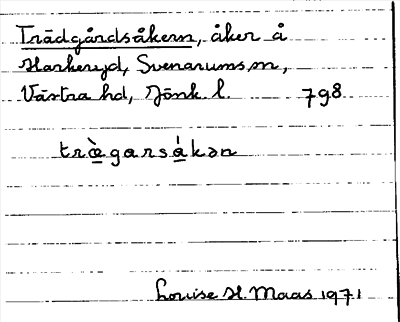 Trädgårdsåkern, åker å
Harkeryd, Svenarums sn,
Västra hd, Jönk. l. 798
trägarsåkən
Louise H. Maas 1971